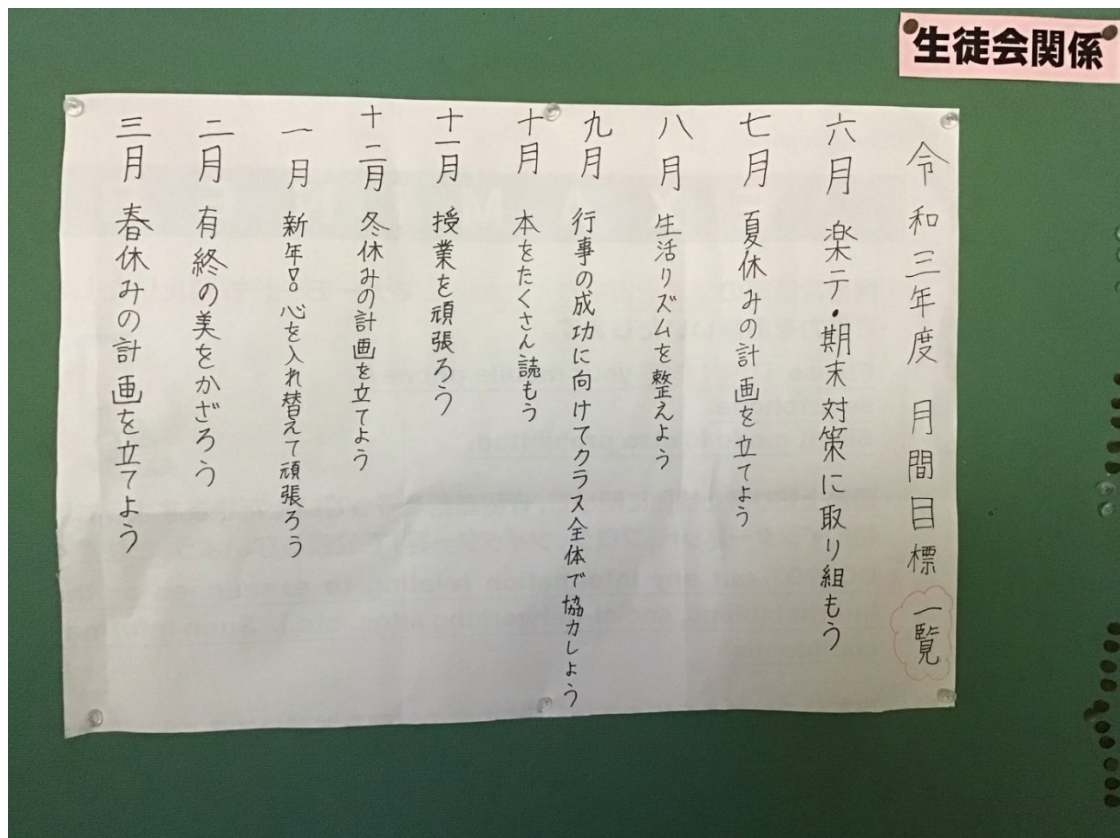 生徒会関係
令和三年度 月間目標 一覧
六月 楽テ・期末対策に取り組もう
七月 夏休みの計画を立てよう
八月 生活リズムを整えよう
九月 行事の成功に向けてクラス全体で協力しよう
十月 本をたくさん読もう
十一月 授業を頑張ろう
十二月 冬休みの計画を立てよう
一月 新年!! 心を入れ替えて頑張ろう
二月 有終の美をかざろう
三月 春休みの計画を立てよう